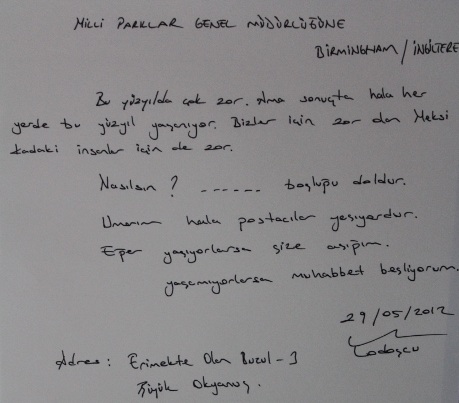 MİLLİ PARKLAR GENEL MÜDÜRLÜĞÜNE
BIRMINGHAM / İNGİLTERE
Bu yüzyılda çok zor. Ama sonuçta hala her
yerde bu yüzyıl yaşanıyor. Bizler için zor olan Meksi
kadaki insanlar için de zor.
Nasılsın ? ------ boşluğu doldur.
Umarım hala postacılar yaşıyordur.
Eğer yaşıyorlarsa size aşığım.
yaşamıyorlarsa muhabbet besliyorum.
29/05/2012
Lodosçu
Adres : Erimekte Olan Buzul - 3
Küçük Okyanus.